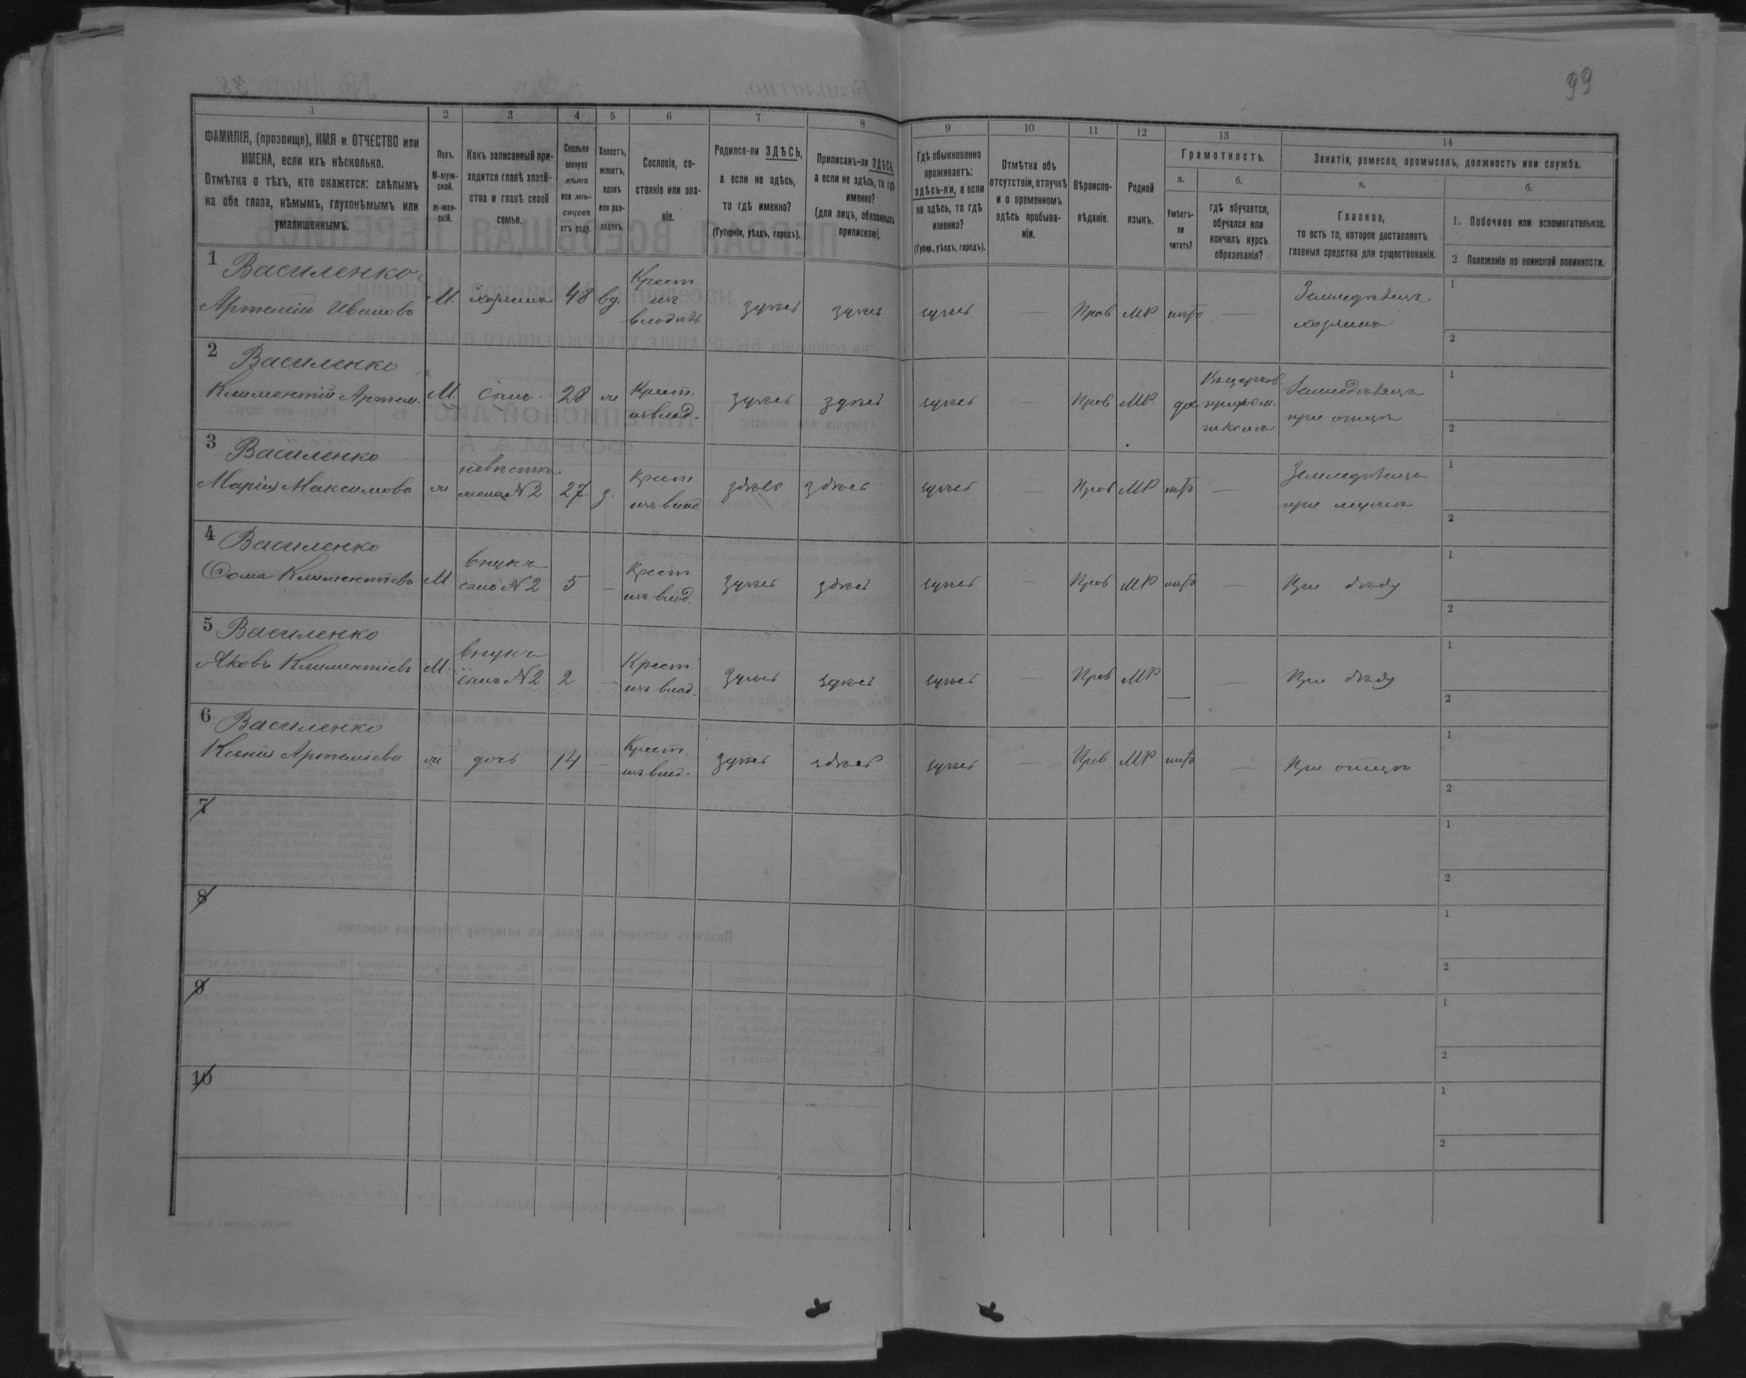 99
1 2 3 4 5 6 7 8 9 10 11 12 13 14
ФАМИЛІЯ, (прозвище), ИМЯ и ОТЧЕСТВО или
ИМЕНА, если ихъ нѣсколько.
Отмѣтка о тѣхъ, кто окажется: слѣпымъ
на оба глаза, нѣмымъ, глухонѣмымъ или
умалишеннымъ.
Полъ.
М-мужской.
ж-женскій.
Какъ записанный при-
ходится главѣ хозяй-
ства и главѣ своей
семьи.
Сколько
минуло
лѣтъ
или мѣ-
сяцевъ
отъ роду.
Холостъ,
женатъ,
вдовъ
или раз-
веденъ.
Сословіе, со-
стояніе или зва-
ніе.
Родился-ли ЗДѢСЬ,
а если не здѣсь,
то гдѣ именно?
(Губернія, уѣздъ, городъ).
Приписанъ-ли ЗДѢСЬ,
а если не здѣсь, то гдѣ
именно?
(для лицъ, обязанныхъ
припискою).
Гдѣ обыкновенно
проживаетъ:
здѣсь-ли, а если
не здѣсь, то гдѣ
именно?
(Губер., уѣздъ, городъ).
Отмѣтка объ
отсутствіи, отлучкѣ
и о временномъ
здѣсь пребыва-
ніи.
Вѣроиспо-
вѣданіе.
Родной
языкъ.
Грамотность.
а.
Умѣетъ-
ли
читать?
б.
гдѣ обучается,
обучался или
кончилъ курсъ
образованія?
Занятія, ремесло, промыселъ, должность или служба.
а.
Главное,
то есть то, которое доставляетъ
главныя средства для существованія.
б.
1. Побочное или вспомогательное.
2 Положеніе по воинской повинности.
1 Василенко
Артемій Иваново М. хозяинъ 48 вд. Крест. изъ владѣл здѣсь здѣсь здѣсь — Прав МР нѣтъ — Земледѣлецъ хозяинъ 1 2
2 Василенко
Климентій Артем. М. сынъ 28 ж Крест. из влад. здѣсь здѣсь здѣсь — Прав МР. да школа Земледѣлецъ при отцѣ 1 2
3 Василенко
Марія Максимова ж невѣстка жена №2 27 з. Крест изъ влад здѣсь здѣсь здѣсь — Прав МР нѣтъ — Земледѣлецъ при мужѣ 1 2
4 Василенко
Ѳома Климентіевъ М внукъ сынъ №2 5 — Крест изъ влад. здѣсь здѣсь здѣсь — Прав МР нѣтъ — При дѣду 1 2
5 Василенко
Яковъ Климентіевъ М. внукъ сынъ №2 2 — Крест изъ влад. здѣсь здѣсь здѣсь — Прав МР — — При дѣду 1 2
6 Василенко
Ксенія Артеміева ж дочь 14 — Крест изъ влад. здѣсь здѣсь здѣсь — Прав МР нѣтъ — При отцѣ 1 2
7 1 2
8 1 2
9 1 2
10 1 2